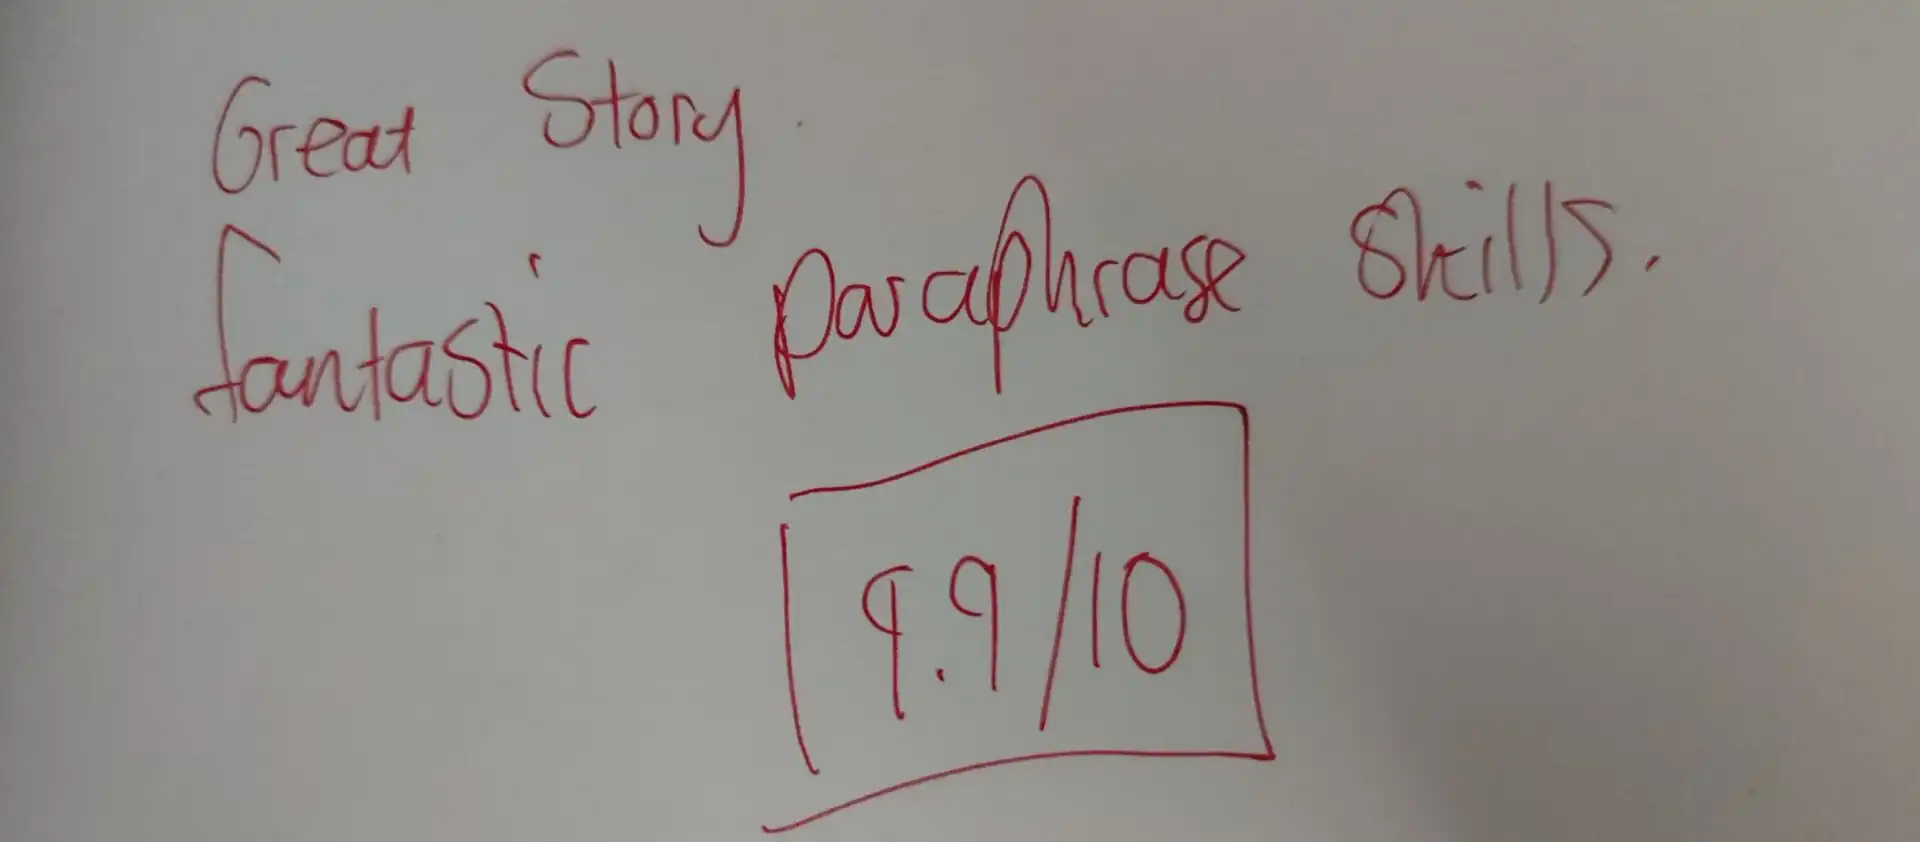 Great Story
fantastic paraphrase skills.
9.9/10